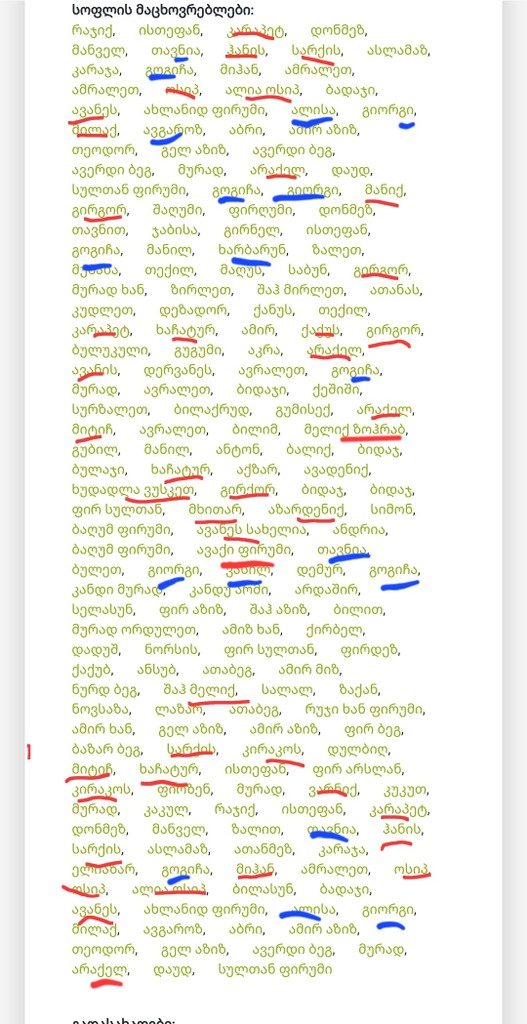 სოფლის მაცხოვრებლები:
რაჯიქ, ისთეფან, კარაპეტ, დონმეზ,
მანველ, თავნია, ჰანის, სარქის, ასლამაზ,
კარაჯა, გოგიჩა, მიჰან, ამრალეთ,
ამრალეთ, ოსიპ, ალია ოსიპ, ბადაჯი,
ავანეს, ახლანიდ ფირუმი, ალისა, გიორგი,
მილაქ, ავგაროზ, აბრი, ამირ აზიზ,
თეოდორ, გელ აზიზ, ავერდი ბეგ,
ავერდი ბეგ, მურად, არაქელ, დაუდ,
სულთან ფირუმი, გოგიჩა, გიორგი, მანიქ,
გირგორ, შაღუმი, ფირღუმი, დონმეზ,
თავნით, ჯაბისა, გირნელ, ისთეფან,
გოგიჩა, მანილ, ხარბარუნ, ზალეთ,
თექილ, მაღუს, საბუნ, გირგორ,
მურად ხან, ზირლეთ, შაჰ მირლეთ, ათანას,
კუდლეთ, დეზადორ, ქანუს, თექილ,
კარაპეტ, ხაჩატურ, ამირ, ქაქუს, გირგორ,
ბულუკული, გუგუმი, აკრა, არაქელ,
ავანის, დერვანეს, ავრალეთ, გოგიჩა,
მურად, ავრალეთ, ბიდაჯი, ქეშიში,
სურზალეთ, ბილაქრუდ, გუმისექ, არაქელ,
მიტიჩ, ავრალეთ, ბილიმ, მელიქ ზოჰრაბ,
გუბილ, მანილ, ანტონ, ბალიქ, ბიდაჯ,
ბულაჯი, ხაჩატურ, აქზარ, ავადენიქ,
ხუდადლა ვუსკეთ, გირქორ, ბიდაჯ, ბიდაჯ,
ფირ სულთან, მხითარ, აზარდენიქ, სიმონ,
ბაღუმ ფირუმი, ავანეს სახელია, ანდრია,
ბაღუმ ფირუმი, ავაქი ფირუმი, თავნია,
ბულეთ, გიორგი, ვანილ, დემურ, გოგიჩა,
კანდი მურად, კანდუ არმი, არდაშირ,
სელასუნ, ფირ აზიზ, შაჰ აზიზ, ბილით,
მურად ორდულეთ, ამიზ ხან, ქირბელ,
დადუშ, ნორსის, ფირ სულთან, ფირდეზ,
ქაქუბ, ანსუბ, ათაბეგ, ამირ მიზ,
ნურდ ბეგ, შაჰ მელიქ, სალალ, ზაქან,
ნოვსაზა, ლაზარ, ათაბეგ, რუჯი ხან ფირუმი,
ამირ ხან, გელ აზიზ, ამირ აზიზ, ფირ ბეგ,
ბაზარ ბეგ, სარქის, კირაკოს, დულბიღ,
მიტიჩ, ხაჩატურ, ისთეფან, ფირ არსლან,
კირაკოს, ფირბენ, მურად, ვარნიქ, კუკუთ,
მურად, კაკულ, რაჯიქ, ისთეფან, კარაპეტ,
დონმეზ, მანველ, ზალით, თავნია, ჰანის,
სარქის, ასლამაზ, ათანმეზ, კარაჯა,
ელიაზარ, გოგიჩა, მიჰან, ამრალეთ, ოსიპ,
ოსიპ, ალია ოსიპ, ბილასუნ, ბადაჯი,
ავანეს, ახლანიდ ფირუმი, ალისა, გიორგი,
მილაქ, ავგაროზ, აბრი, ამირ აზიზ,
თეოდორ, გელ აზიზ, ავერდი ბეგ, მურად,
არაქელ, დაუდ, სულთან ფირუმი